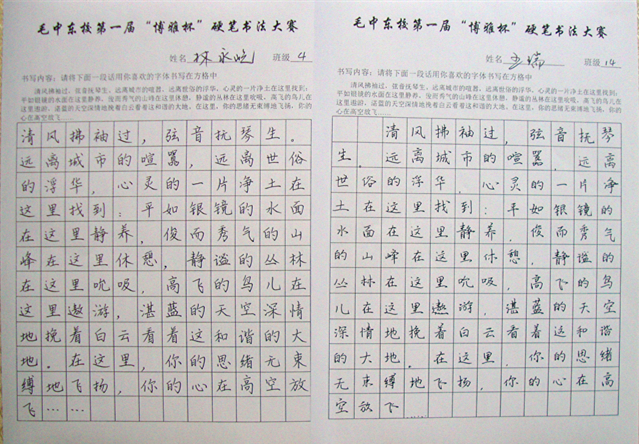 毛中东校第一届“博雅杯”硬笔书法大赛
姓名 林永皖 班级 4
书写内容：请将下面一段话用你喜欢的字体书写在方格中
清风拂袖过，弦音抚琴生。远离城市的喧嚣，远离世俗的浮华，心灵的一片净土在这里找到：
平如银镜的水面在这里静养，俊而秀气的山峰在这里休憩，静谧的丛林在这里吮吸，高飞的鸟儿在
这里遨游，湛蓝的天空深情地挽着白云看着这和谐的大地。在这里，你的思绪无束缚地飞扬，你的
心在高空放飞……
清风拂袖过，弦音抚琴生。
远离城市的喧嚣，远离世俗
的浮华，心灵的一片净土在
这里找到：平如银镜的水面
在这里静养，俊而秀气的山
峰在这里休憩，静谧的丛林
在这里吮吸，高飞的鸟儿在
这里遨游，湛蓝的天空深情
地挽着白云看着这和谐的大
地。在这里，你的思绪无束
缚地飞扬，你的心在高空放
飞……
毛中东校第一届“博雅杯”硬笔书法大赛
姓名 王瑞 班级 14
书写内容：请将下面一段话用你喜欢的字体书写在方格中
清风拂袖过，弦音抚琴生。远离城市的喧嚣，远离世俗的浮华，心灵的一片净土在这里找到：
平如银镜的水面在这里静养，俊而秀气的山峰在这里休憩，静谧的丛林在这里吮吸，高飞的鸟儿在
这里遨游，湛蓝的天空深情地挽着白云看着这和谐的大地。在这里，你的思绪无束缚地飞扬，你的
心在高空放飞……
清风拂袖过，弦音抚琴
生。远离城市的喧嚣，远离
世俗的浮华，心灵的一片净
土在这里找到：平如银镜的
水面在这里静养，俊而秀气
的山峰在这里休憩，静谧的
丛林在这里吮吸，高飞的鸟
儿在这里遨游，湛蓝的天空
深情地挽着白云看着这和谐
的大地。在这里，你的思绪
无束缚地飞扬，你的心在高
空放飞……